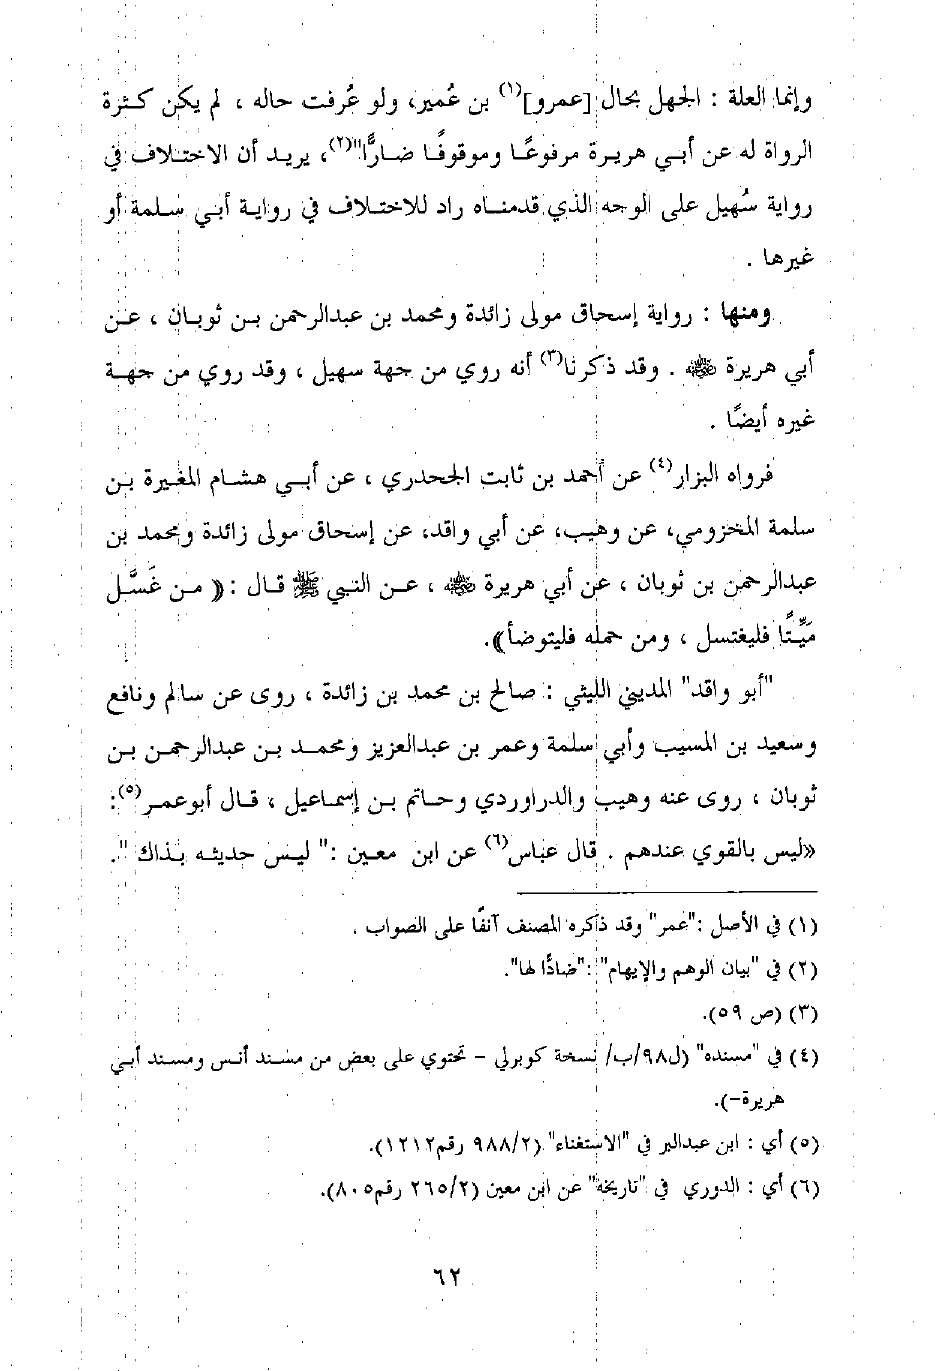 وإنما العلة : الجهل بحال [عمرو](١) بن عُمير، ولو عُرفت حاله ، لم يكن كثرة
الرواة له عن أبي هريرة مرفوعًا وموقوفًا ضارًّا"(٢)، يريد أن الاختلاف في
رواية سُهيل على الوجه الذي قدمناه راد للاختلاف في رواية أبي سلمة أو
غيرها .
ومنها : رواية إسحاق مولى زائدة ومحمد بن عبدالرحمن بن ثوبان ، عن
أبي هريرة ﷺ . وقد ذكرنا(٣) أنه روي من جهة سهيل ، وقد روي من جهة
غيره أيضًا .
فرواه البزار(٤) عن أحمد بن ثابت الجحدري ، عن أبي هشام المغيرة بن
سلمة المخزومي، عن وهيب، عن أبي واقد، عن إسحاق مولى زائدة ومحمد بن
عبدالرحمن بن ثوبان ، عن أبي هريرة ﷺ ، عن النبي ﷺ قال : (( من غَسَّل
مَيِّتًا فليغتسل ، ومن حمله فليتوضأ)).
"أبو واقد" المديني الليثي : صالح بن محمد بن زائدة ، روى عن سالم ونافع
وسعيد بن المسيب وأبي سلمة وعمر بن عبدالعزيز ومحمد بن عبدالرحمن بن
ثوبان ، روى عنه وهيب والدراوردي وحاتم بن إسماعيل ، قال أبوعمر(٥):
«ليس بالقوي عندهم . قال عباس(٦) عن ابن معين :" ليس حديثه بذاك ".
(١) في الأصل :"عمر" وقد ذكره المصنف آنفًا على الصواب .
(٢) في "بيان الوهم والإيهام" :"ضادًّا لها".
(٣) (ص ٥٩).
(٤) في "مسنده" (ل٩٨/ب/ نسخة كوبرلي - تحتوي على بعض من مسند أنس ومسند أبي
هريرة-).
(٥) أي : ابن عبدالبر في "الاستغناء" (٩٨٨/٢ رقم١٢١٢).
(٦) أي : الدوري في "تاريخه" عن ابن معين (٢٦٥/٢ رقم٨٠٥).
٦٢